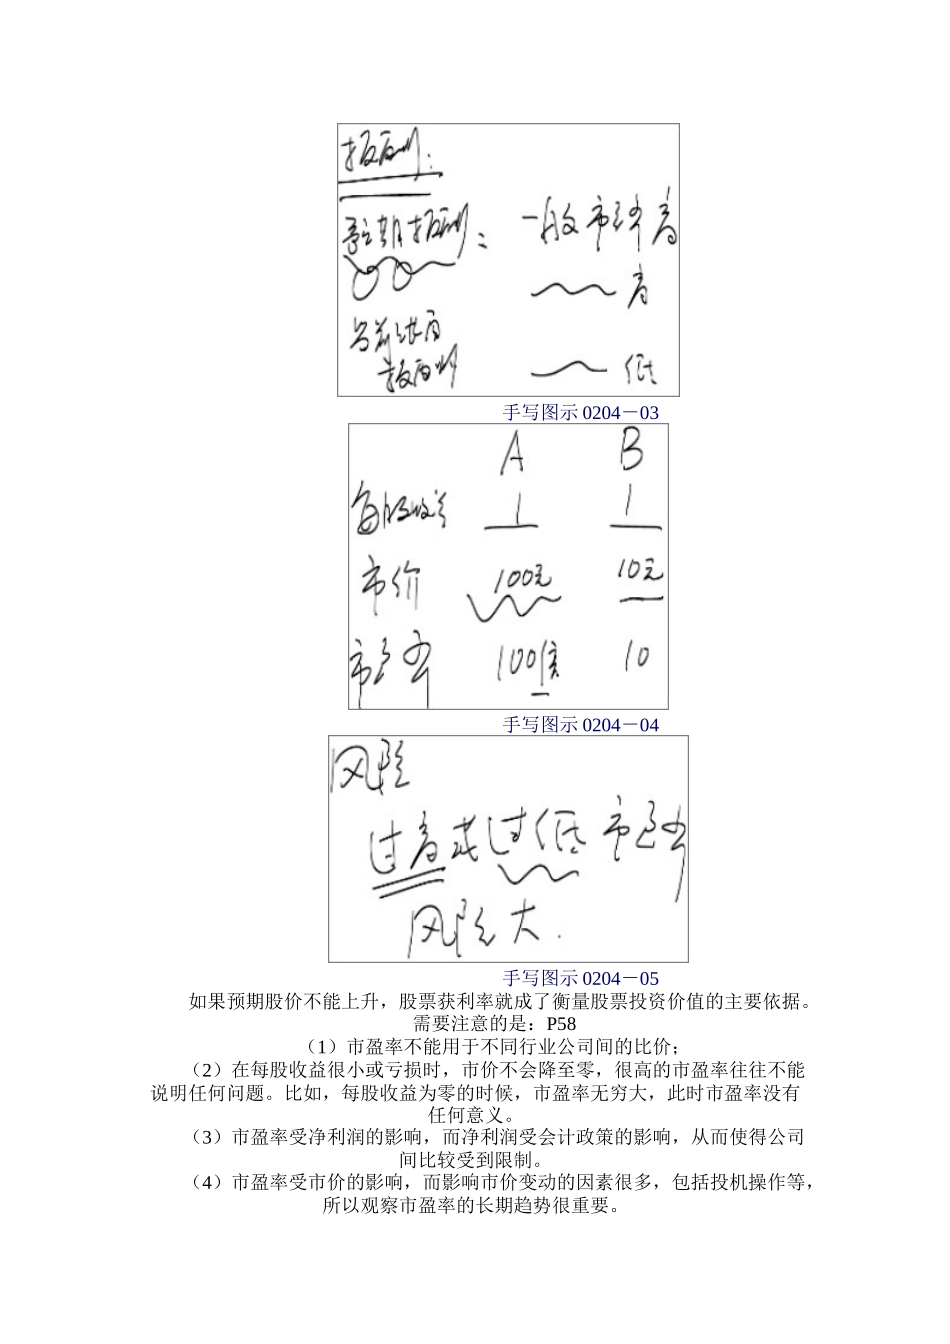 报酬：
一般市净率高
高
报酬
低
手写图示 0204－03
A B
每股收益 1 1
市价 100元 10元
市盈率 100倍 10
手写图示 0204－04
风险
过高或过低市盈率
风险大.
手写图示 0204－05
如果预期股价不能上升，股票获利率就成了衡量股票投资价值的主要依据。
需要注意的是：P58
（1）市盈率不能用于不同行业公司间的比价；
（2）在每股收益很小或亏损时，市价不会降至零，很高的市盈率往往不能
说明任何问题。比如，每股收益为零的时候，市盈率无穷大，此时市盈率没有
任何意义。
（3）市盈率受净利润的影响，而净利润受会计政策的影响，从而使得公司
间比较受到限制。
（4）市盈率受市价的影响，而影响市价变动的因素很多，包括投机操作等，
所以观察市盈率的长期趋势很重要。